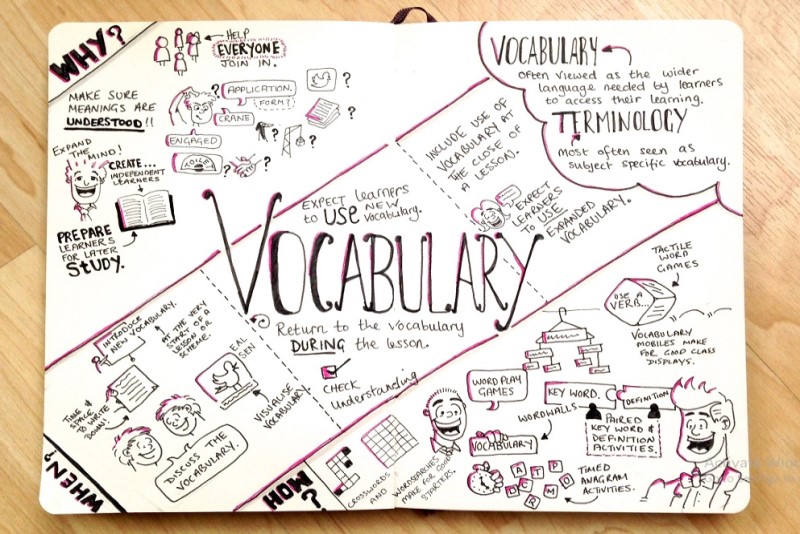 WHY?
HELP
EVERYONE
JOIN IN.
MAKE SURE
MEANINGS ARE
UNDERSTOOD!!
?
APPLICATION.
FORM?
CRANE
ENGAGED
TOILET
?
?
?
?
?
EXPAND
THE MIND!
CREATE...
INDEPENDENT
LEARNERS
PREPARE
LEARNERS
FOR LATER
STUDY.
VOCABULARY
often viewed as the wider
language needed by learners
to access their learning.
TERMINOLOGY
most often seen as
subject specific vocabulary.
INCLUDE USE OF
VOCABULARY AT
THE CLOSE OF
A LESSON.
EXPECT
LEARNERS
TO USE
EXPANDED
VOCABULARY.
EXPECT learners
to USE NEW
vocabulary.
VOCABULARY
Return to the vocabulary
DURING the lesson.
CHECK
Understanding
INTRODUCE
NEW VOCABULARY.
AT THE VERY
START OF A
LESSON OR
SCHEME.
EAL
SEN
VISUALISE
VOCABULARY
TIME &
SPACE
TO WRITE
DOWN!
DISCUSS THE
VOCABULARY.
WHEN?
HOW?
CROSSWORDS
AND
WORDSEARCHES
MAKE FOR GOOD
STARTERS.
WORD PLAY
GAMES
WORDWALLS
VOCABULARY
KEY WORD.
DEFINITION
PAIRED
KEY WORD &
DEFINITION
ACTIVITIES.
A T P
D C R M O
TIMED
ANAGRAM
ACTIVITIES.
TACTILE
WORD
GAMES
USE A
VERB...
VOCABULARY
MOBILES MAKE
FOR GOOD CLASS
DISPLAYS.